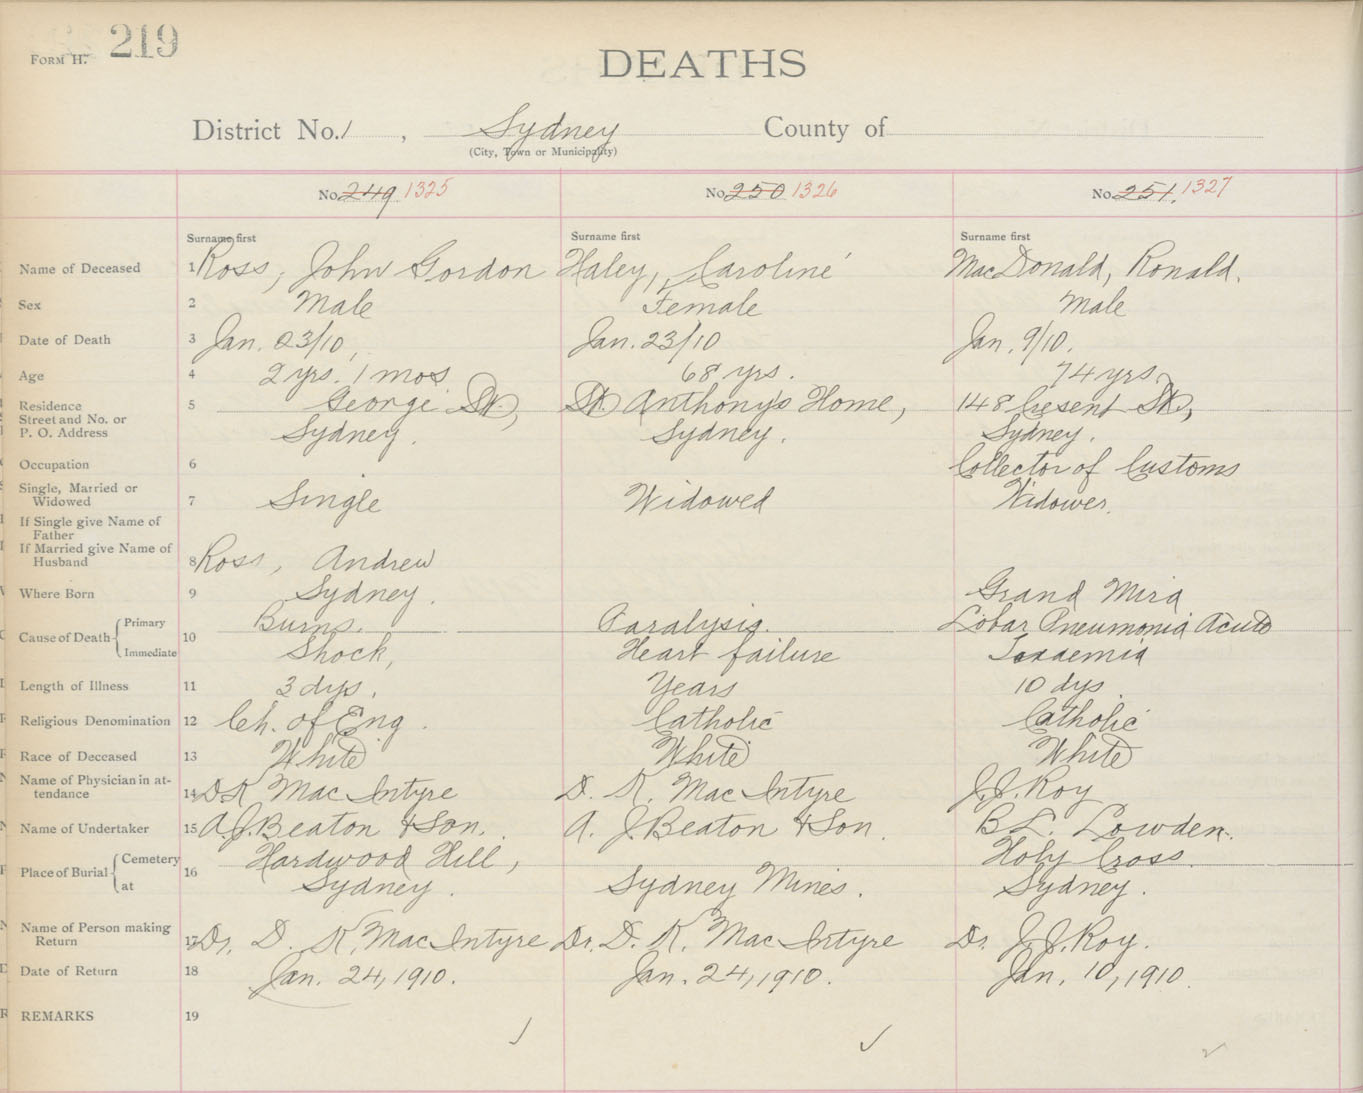 FORM H. 219
DEATHS
District No. 1, Sydney County of
(City, Town or Municipality)
No. 249 1325 No. 250 1326 No. 251. 1327
Surname first Surname first Surname first
Name of Deceased 1 Ross, John Gordon Haley, Caroline MacDonald, Ronald.
Sex 2 Male Female Male
Date of Death 3 Jan. 23/10, Jan. 23/10 Jan. 9/10.
Age 4 2 yrs. 1 mos. 68 yrs. 74 yrs
Residence 5 George St, St Anthony's Home, 148 Cresent St,
Street and No. or
P. O. Address Sydney. Sydney. Sydney.
Occupation 6 Collector of Customs
Single, Married or
Widowed 7 Single Widowed Widower.
If Single give Name of
Father
If Married give Name of
Husband 8 Ross, Andrew
Where Born 9 Sydney. Grand Mira
Primary Burns. Paralysis. Lobar Pneumonia Acute
Cause of Death 10
Immediate Shock, Heart failure Toxaemia
Length of Illness 11 3 dys. Years 10 dys
Religious Denomination 12 Ch. of Eng. Catholic Catholic
Race of Deceased 13 White White White
Name of Physician in at-
tendance 14 D. K MacIntyre D. K. MacIntyre J. J. Roy
Name of Undertaker 15 A. J. Beaton & Son. A. J. Beaton & Son. B L. Lowden.
Cemetery Hardwood Hill, Holy Cross.
Place of Burial 16
at Sydney. Sydney Mines. Sydney.
Name of Person making
Return 17 Dr. D. K. MacIntyre Dr. D. K. MacIntyre Dr. J. J. Roy.
Date of Return 18 Jan. 24, 1910. Jan. 24, 1910. Jan. 10, 1910.
REMARKS 19